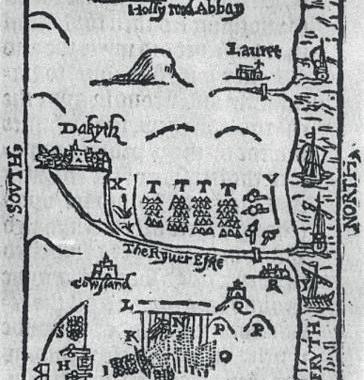 Holly rod Abbay
Lauret
Dakyth
SOUTH
NORTH
X
T T T T
V
The Ryuer Eske
Cowsland
R
Q
L
K
N
P P
S
H
I
O
FRYTH